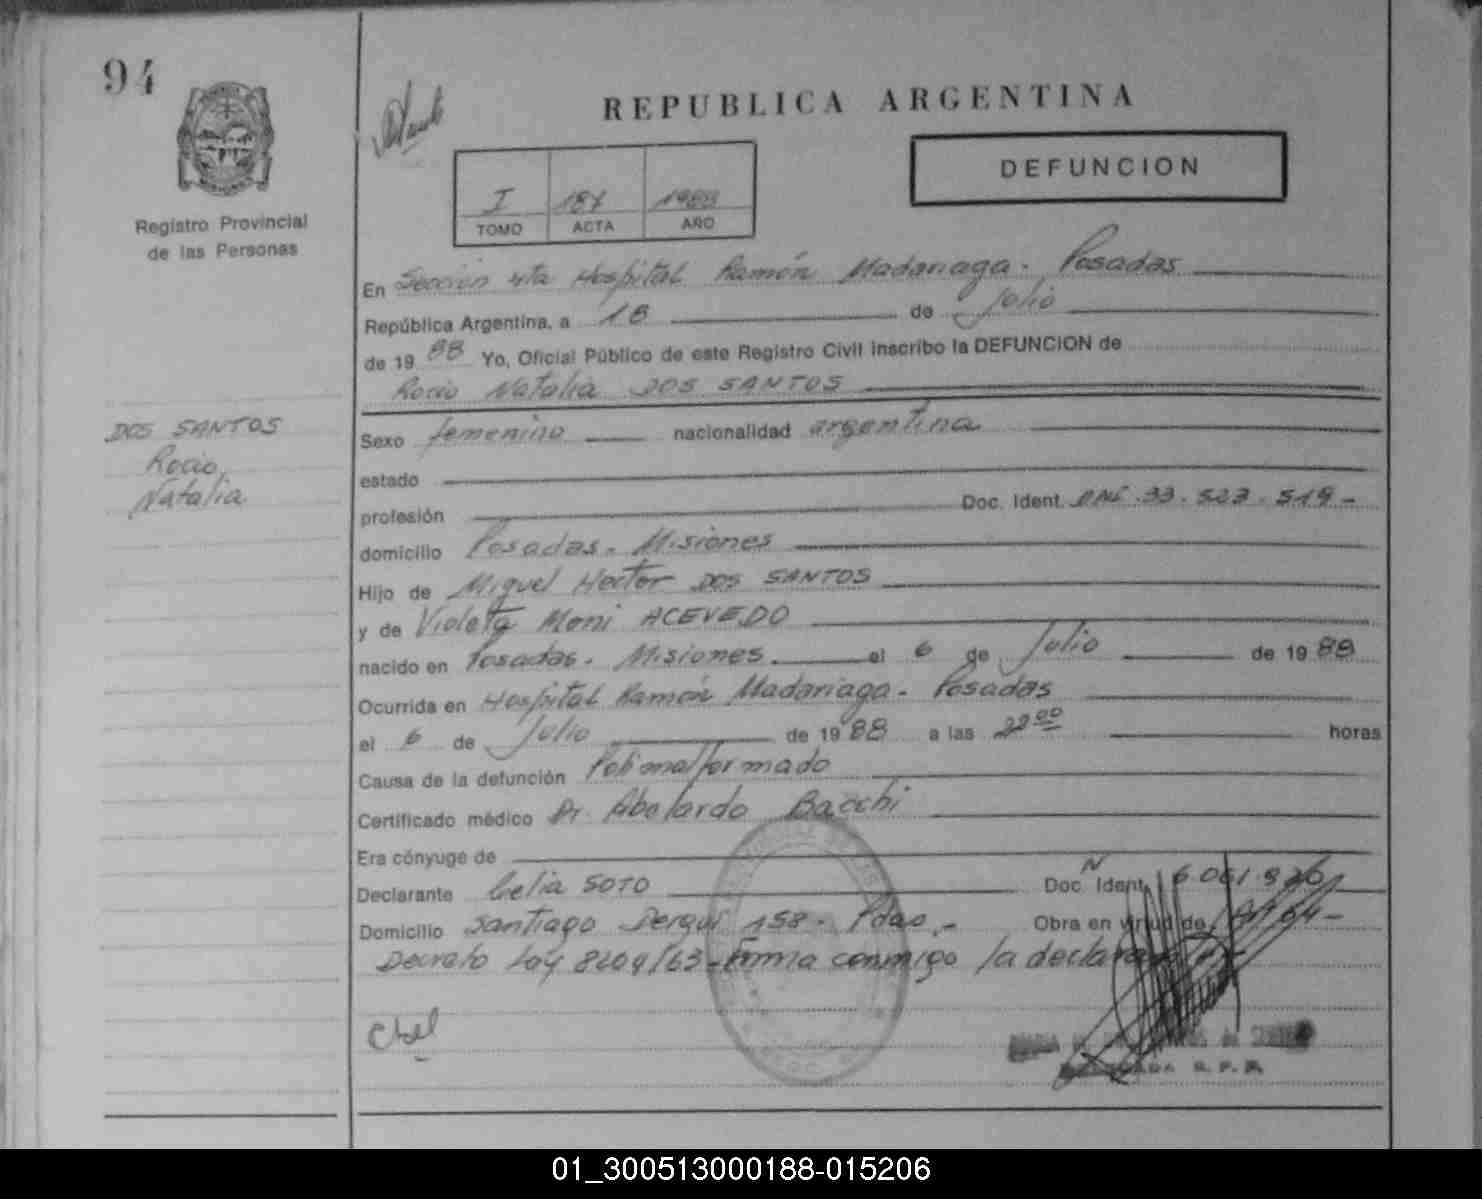 94
REPUBLICA ARGENTINA
DEFUNCION
I 187 1988
TOMO ACTA AÑO
Registro Provincial
de las Personas
En Sección 4ta Hospital Ramón Madariaga - Posadas
República Argentina, a 18 de Julio
de 1988 Yo, Oficial Público de este Registro Civil inscribo la DEFUNCION de
Rocio Natalia DOS SANTOS
DOS SANTOS
Rocio
Natalia
Sexo femenino nacionalidad argentina
estado
profesión Doc. Ident. DNI. 33.523.519-
domicilio Posadas. Misiones
Hijo de Miguel Hector DOS SANTOS
y de Violeta Moni ACEVEDO
nacido en Posadas. Misiones el 6 de Julio de 1988
Ocurrida en Hospital Ramón Madariaga - Posadas
el 6 de Julio de 1988 a las 22 00 horas
Causa de la defunción Polimalformado
Certificado médico Dr. Abelardo Bacchi
Era cónyuge de
Declarante Celia SOTO Doc. Ident. 6.061.926
Domicilio Santiago Derqui 158 - Pdas.- Obra en virtud de Art 64-
Decreto Ley 8204/63 - Firma conmigo la declarante
01_300513000188-015206